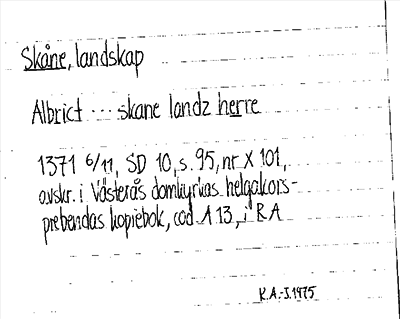 Skåne, landskap
Albrict ··· skane landz herre
1371 6/11, SD 10, s. 95, nr X 101,
avskr. i Västerås domkyrkas helgakors-
prebendas kopiebok, cod A 13, i RA
K.A.-J. 1975